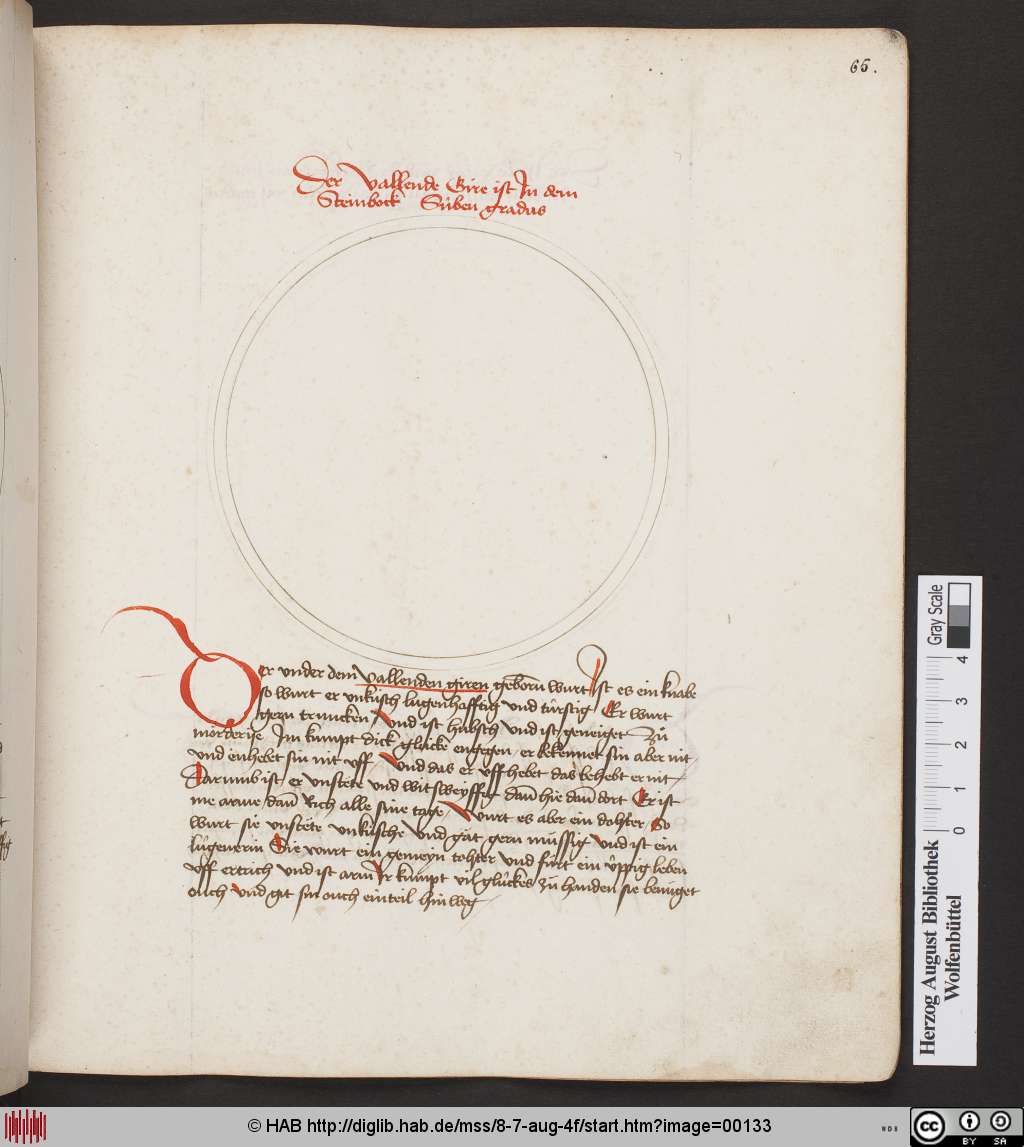 65.
Der vallende Gire ist In dem
Steinbock Süben gradus
Der vnder dem vallenden giren geborn wurt Ist es ein knabe
so wurt er vnküsch lugenhafftig vnd türstig Er wurt
gern truncken Vnd ist hübsch vnd ist geneiget Zü
morderije Im kumpt dick glücke engegen er bekennet sin aber nit
vnd enhebet sin nit vff Vnd das er vff hebet das behebt er nit
Darumb ist er vnstete vnd witsweyffig dann hie dann dort Er ist
me arme dann Rich alle sine tage Wurt es aber ein dohter So
wurt sie vnstete vnküsche Vnd gät gern müssig Vnd ist ein
lügenerin Sie wurt ein gemeyn tohter vnd fürt ein üppig leben
vff ertrich vnd ist arm Ir kumpt vil glückes zü handen sie benüget
ouch Vnd git sin ouch ein teil hin weg
Gray Scale
0 1 2 3 4
Herzog August Bibliothek
Wolfenbüttel
© HAB http://diglib.hab.de/mss/8-7-aug-4f/start.htm?image=00133
WDB
CC BY SA